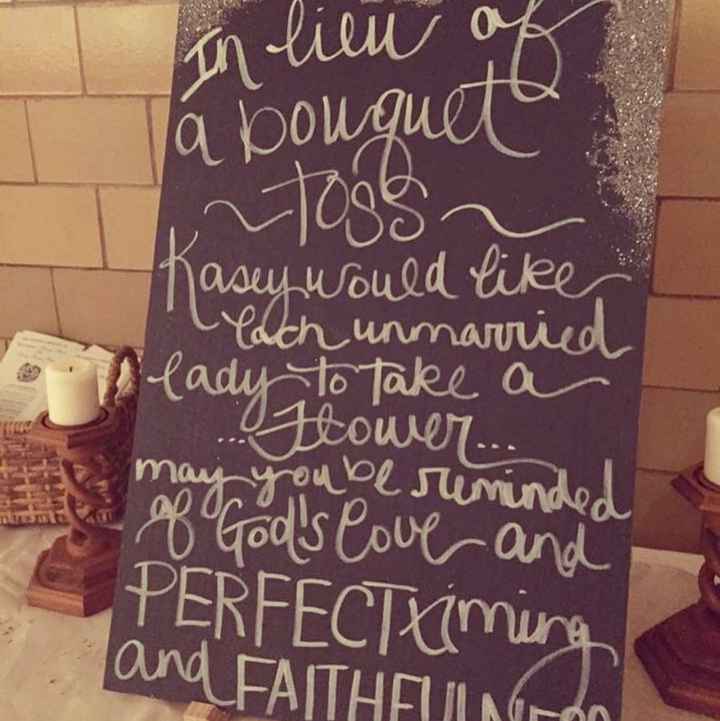 In lieu of
a bouquet
~ Toss ~
Kasey would like
each unmarried
lady to take a
... Flower...
may you be reminded
of God's love and
PERFECT timing
and FAITHFULNESS